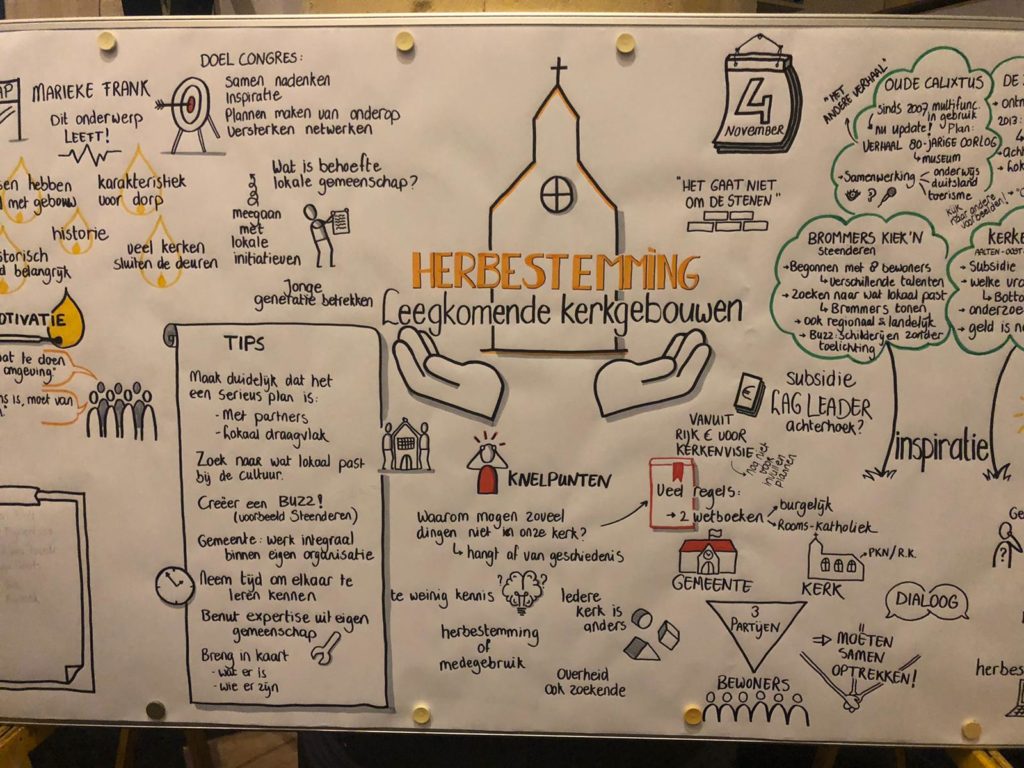 AP
MARIEKE FRANK
Dit onderwerp
LEEFT!
DOEL CONGRES:
Samen nadenken
Inspiratie
Plannen maken van onderop
Versterken netwerken
hebben
met gebouw
karakteristiek
voor dorp
historie
belangrijk
veel kerken
sluiten de deuren
Wat is behoefte
lokale gemeenschap?
meegaan
met
lokale
initiatieven
Jonge
generatie betrekken
te doen
omgeving"
is, moet van
TIPS
Maak duidelijk dat het
een serieus plan is:
- Met partners
- Lokaal draagvlak
Zoek naar wat lokaal past
bij de cultuur.
Creëer een BUZZ!
(voorbeeld Steenderen)
Gemeente: werk integraal
binnen eigen organisatie
Neem tijd om elkaar te
leren kennen
Benut expertise uit eigen
gemeenschap
Breng in kaart
- wat er is
- wie er zijn
HERBESTEMMING
Leegkomende kerkgebouwen
4
NOVEMBER
"HET GAAT NIET
OM DE STENEN"
KNELPUNTEN
Waarom mogen zoveel
dingen niet in onze kerk?
hangt af van geschiedenis
te weinig kennis
herbestemming
of
medegebruik
Iedere
kerk is
anders
Overheid
ook zoekende
SUBSIDIE
LAG LEADER
achterhoek?
VANUIT
RIJK € VOOR
KERKENVISIE
nog niet
voor
invullen
plannen
Veel regels:
→ 2 wetboeken
burgelijk
Rooms-katholiek
GEMEENTE
KERK
PKN/R.K.
3
PARTIJEN
BEWONERS
DIALOOG
⇒ MOETEN
SAMEN
OPTREKKEN!
"HET
ANDERE VERHAAL"
OUDE CALIXTUS
sinds 2007 multifunc.
in gebruik
nu update! Plan:
VERHAAL 80-JARIGE OORLOG
museum
→ Samenwerking
onderwijs
duitsland
toerisme
Kijk
naar andere
voorbeelden!
DE
2013:
BROMMERS KIEK'N
Steenderen
→ Begonnen met 8 bewoners
verschillende talenten
→ Zoeken naar wat lokaal past
Brommers tonen
→ ook regionaal & landelijk
→ Buzz: Schilderijen zonder
toelichting
KERKE
AALTEN-OOST
→ Subsidie
→ welke
→ onderzoe
→ geld is
inspiratie